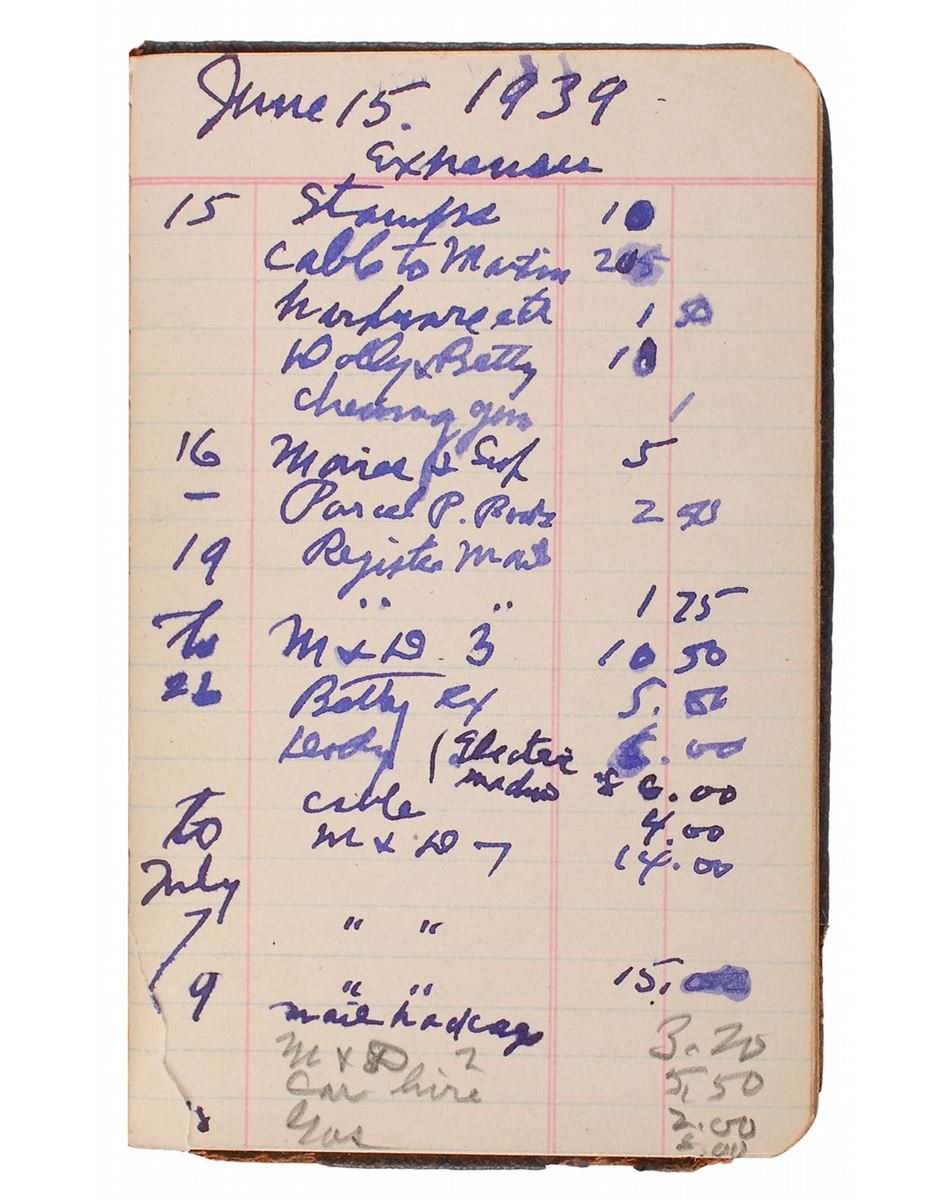 June 15. 1939
Expenses
15 Stamps 10
Cable to Martin 205
hardware etc 1 50
Dolly & Betty 10
chewing gum 1
16 Movies & Sup 5
– Parcel P. Books 2 50
19 Register Mail
" " 1 75
to M & D 3 10 50
26 Betty ex 5. 00
6. 00
(Electric
8.00
cable 4.00
to M & D 7 14.00
July
7 " "
9 " " 15.
mail
M & D 2 3.20
Car hire 5.50
Gas 2.00